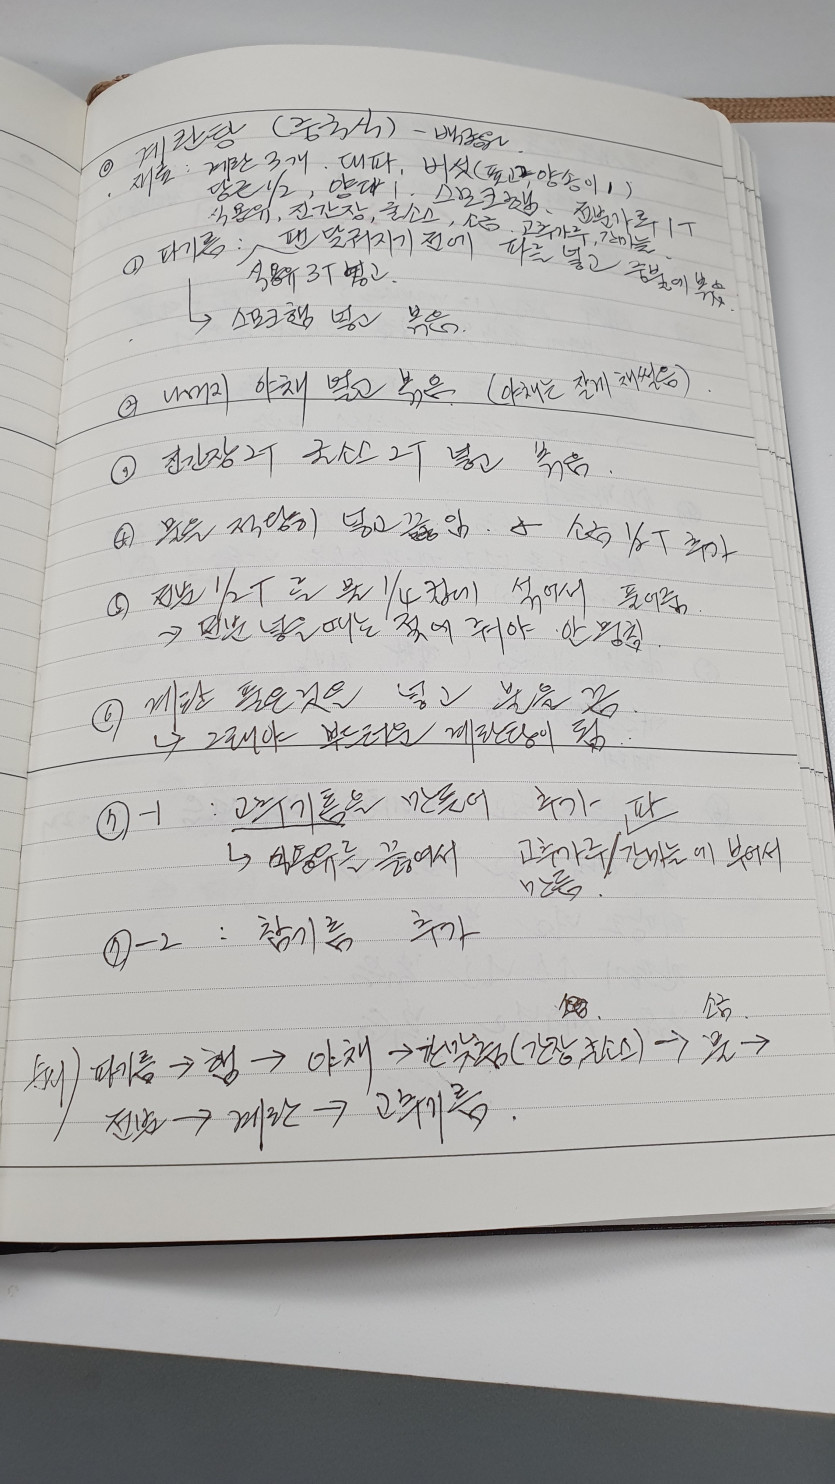 ◎ 계란탕 (중국식) - 백종원
. 재료 : 계란 3개. 대파, 버섯(표고2, 양송이1)
당근 1/2, 양파 1. 스모크햄. 전분가루 1T
식용유, 진간장, 굴소스, 소금. 고추가루, 간마늘.
① 파기름 : 팬 달궈지기 전에 파를 넣고 중불에 볶음.
식용유 3T 넣고.
↳ 스모크햄 넣고 볶음.
② 나머지 야채 넣고 볶음. (야채는 잘게 채썰음).
③ 진간장 2T 굴소스 2T 넣고 볶음.
④ 물을 적당히 넣고 끓임. & 소금 1/2T 추가
⑤ 전분 1/2T 를 물 1/4컵에 섞어서 풀어줌.
→ 전분 넣을때는 젓어 줘야 안 뭉침.
⑥ 계란 푼것을 넣고 볶음
↳ 그래야 부드러운 계란탕이 됨.
⑦-1 : 고추기름을 만들어 추가 파
↳ 식용유를 끓여서 고추가루/간마늘에 부어서
만듦.
⑦-2 : 참기름 추가
소금.
순서) 파기름 → 햄 → 야채 → (간장, 굴소스) → 물 →
전분 → 계란 → 고추기름.